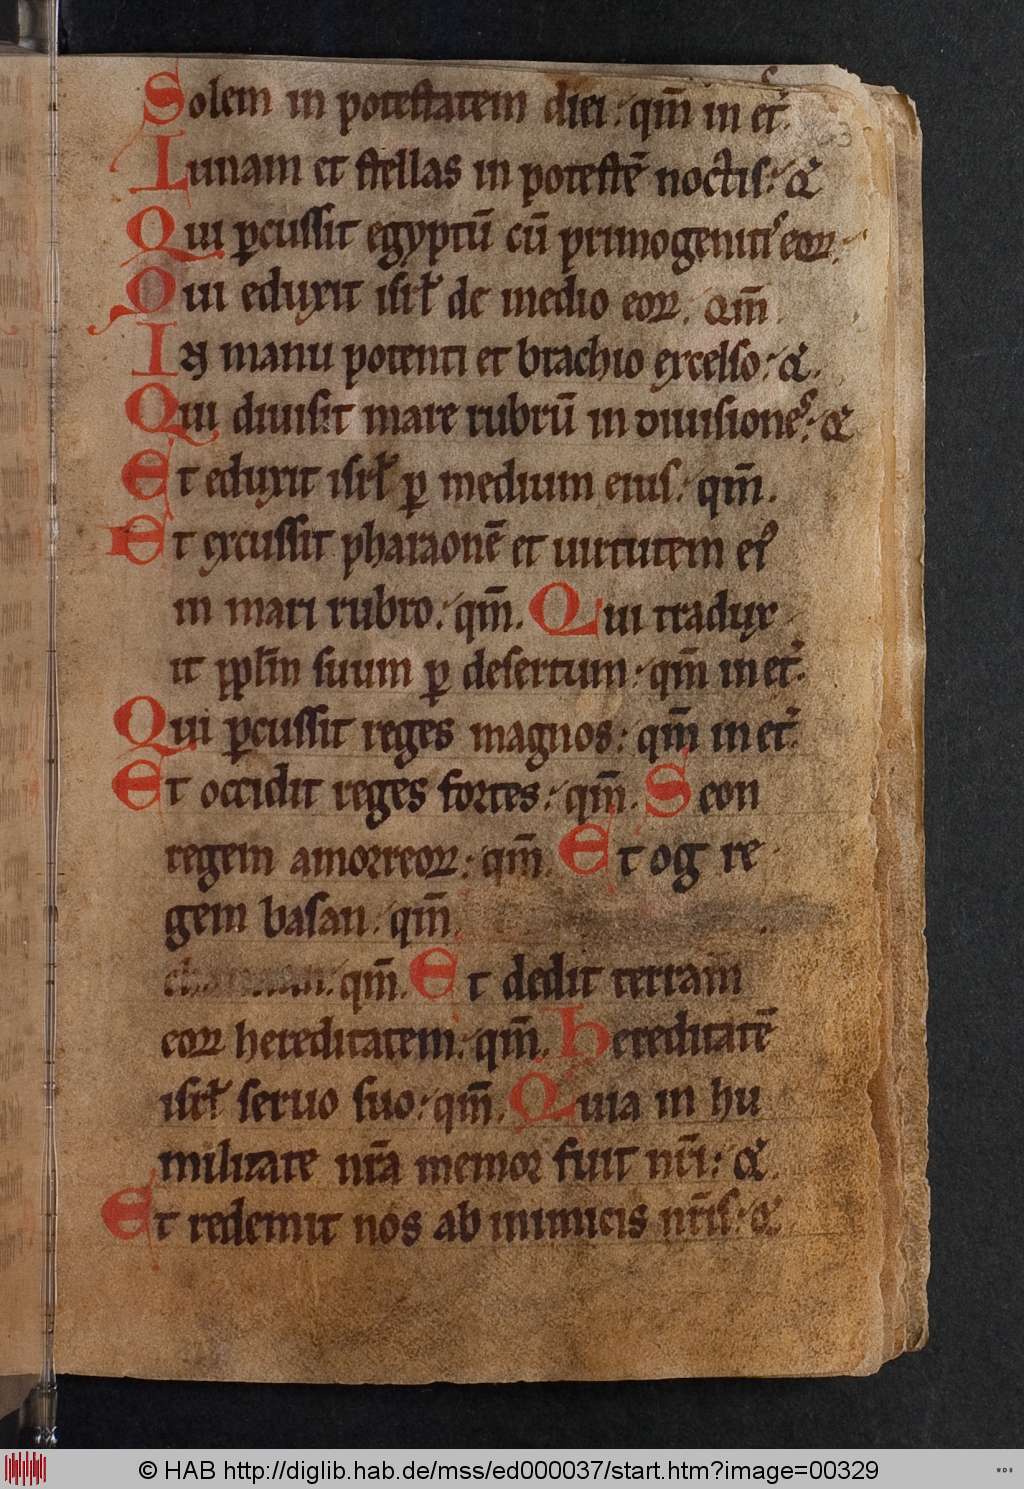 Solem in potestatem diei : qm̄ in et᷑.
Lunam et stellas in potestē noctis : Q᷑
Qui p̱cussit egyptū cū primogenitis eoꝝ :
Qui eduxit isrl̄ de medio eoꝝ . Qm̄
In manu potenti et brachio excelso : Q᷑.
Qui diuisit mare rubrū in diuisiones : Q᷑
Et eduxit isrl̄ ꝑ medium eius : qm̄ .
Et excussit pharaonē et uirtutem ei᷒
in mari rubro : qm̄ . Qui tradux
it pplm̄ suum ꝑ desertum : qm̄ in et᷑.
Qui ꝑcussit reges magnos : qm̄ in et᷑.
Et occidit reges fortes : qm̄ . Seon
regem amorreoꝝ : qm̄ . Et og re
gem basan : qm̄ .
qm̄ . Et dedit terram
eoꝝ hereditatem : qm̄ . Hereditatē
isrl̄ seruo suo : qm̄ . Quia in hu
militate nr̄a memor fuit nr̄i : Q᷑ .
Et redemit nos ab inimicis nr̄is : Q᷑
© HAB http://diglib.hab.de/mss/ed000037/start.htm?image=00329